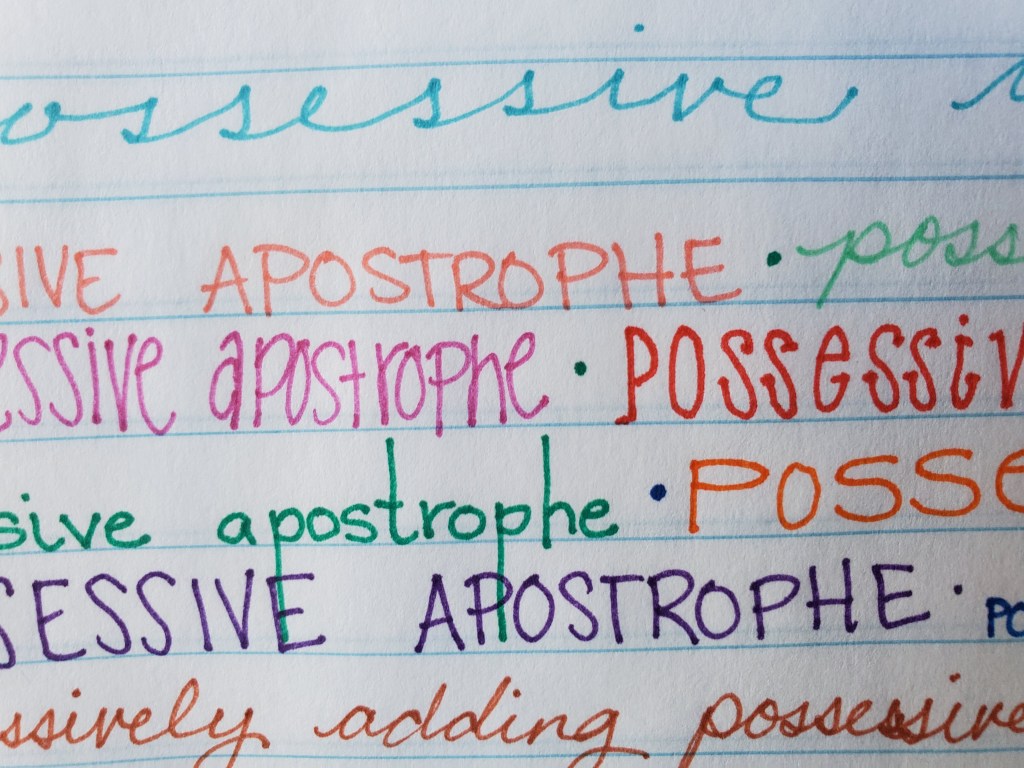 ossessive
SIVE APOSTROPHE · poss
essive apostrophe · possessiv
sive apostrophe · POSSE
SESSIVE APOSTROPHE · PO
ssively adding possessive